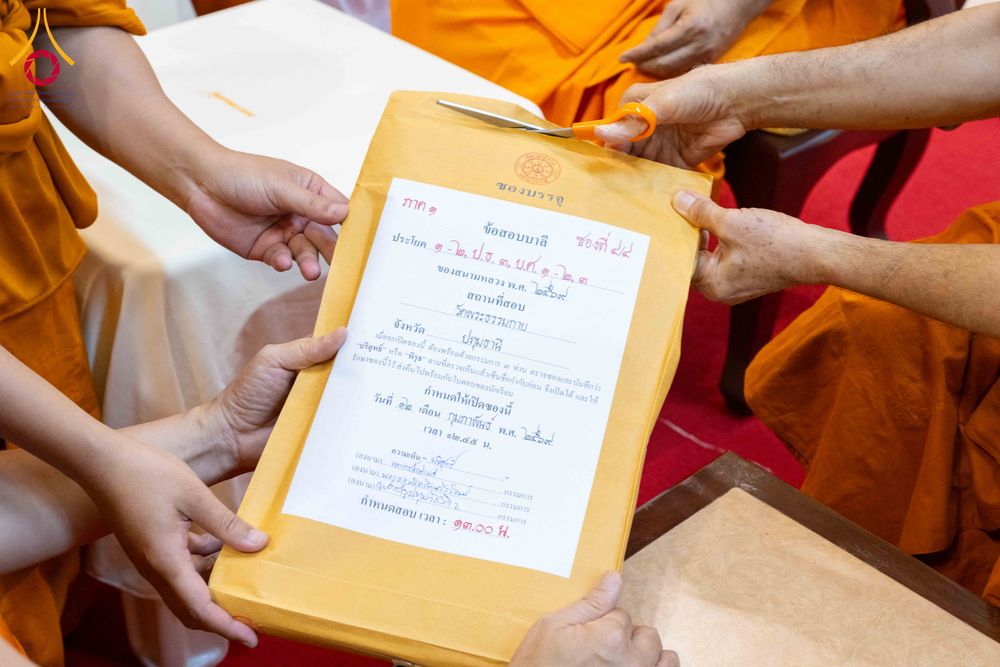 ซองบรรจุ
ภาค ๑
ข้อสอบบาลี
ซองที่ ๔๔
ประโยค ๑ -๒, ป.ธ. ๓, บ.ศ. ๑ -๒, ๓
ของสนามหลวง พ.ศ. ๒๕๖๙
สถานที่สอบ
วัดพระธรรมกาย
จังหวัด ปทุมธานี
เมื่อจะเปิดซองนี้ ต้องพร้อมด้วยกรรมการ ๓ ท่าน ตรวจซองและบันทึกว่า
"บริสุทธิ์" หรือ "พิรุธ" ตามที่ตรวจเห็นแล้วเซ็นชื่อกำกับก่อน จึงเปิดได้ และให้
รักษาซองนี้ไว้ ส่งคืนไปพร้อมกับใบตอบของนักเรียน
กำหนดให้เปิดซองนี้
วันที่ ๑๒ เดือน กุมภาพันธ์ พ.ศ. ๒๕๖๙
เวลา ๑๒.๔๕ น.
ความเห็น - บริสุทธิ์
(ลงนาม) กรรมการ
(ลงนาม) กรรมการ
(ลงนาม) กรรมการ
กำหนดสอบ เวลา : ๑๓.๐๐ น.